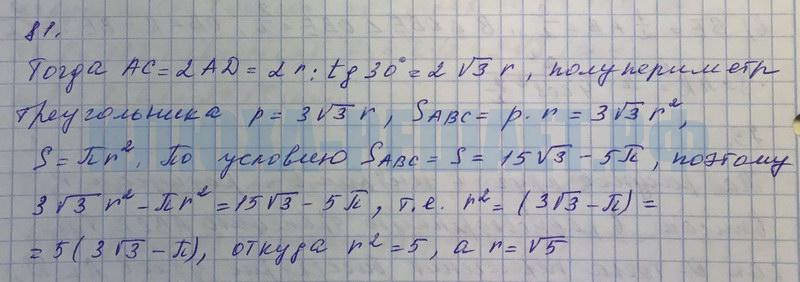 81.
Тогда AC = 2AD = 2r : tg 30° = 2√3 r, полупериметр
треугольника p = 3√3 r, S_ABC = p · r = 3√3 r²,
S = πr². По условию S_ABC = S = 15√3 - 5π, поэтому
3√3 r² - πr² = 15√3 - 5π, т.е. r² = (3√3 - π) =
= 5(3√3 - π), откуда r² = 5, а r = √5